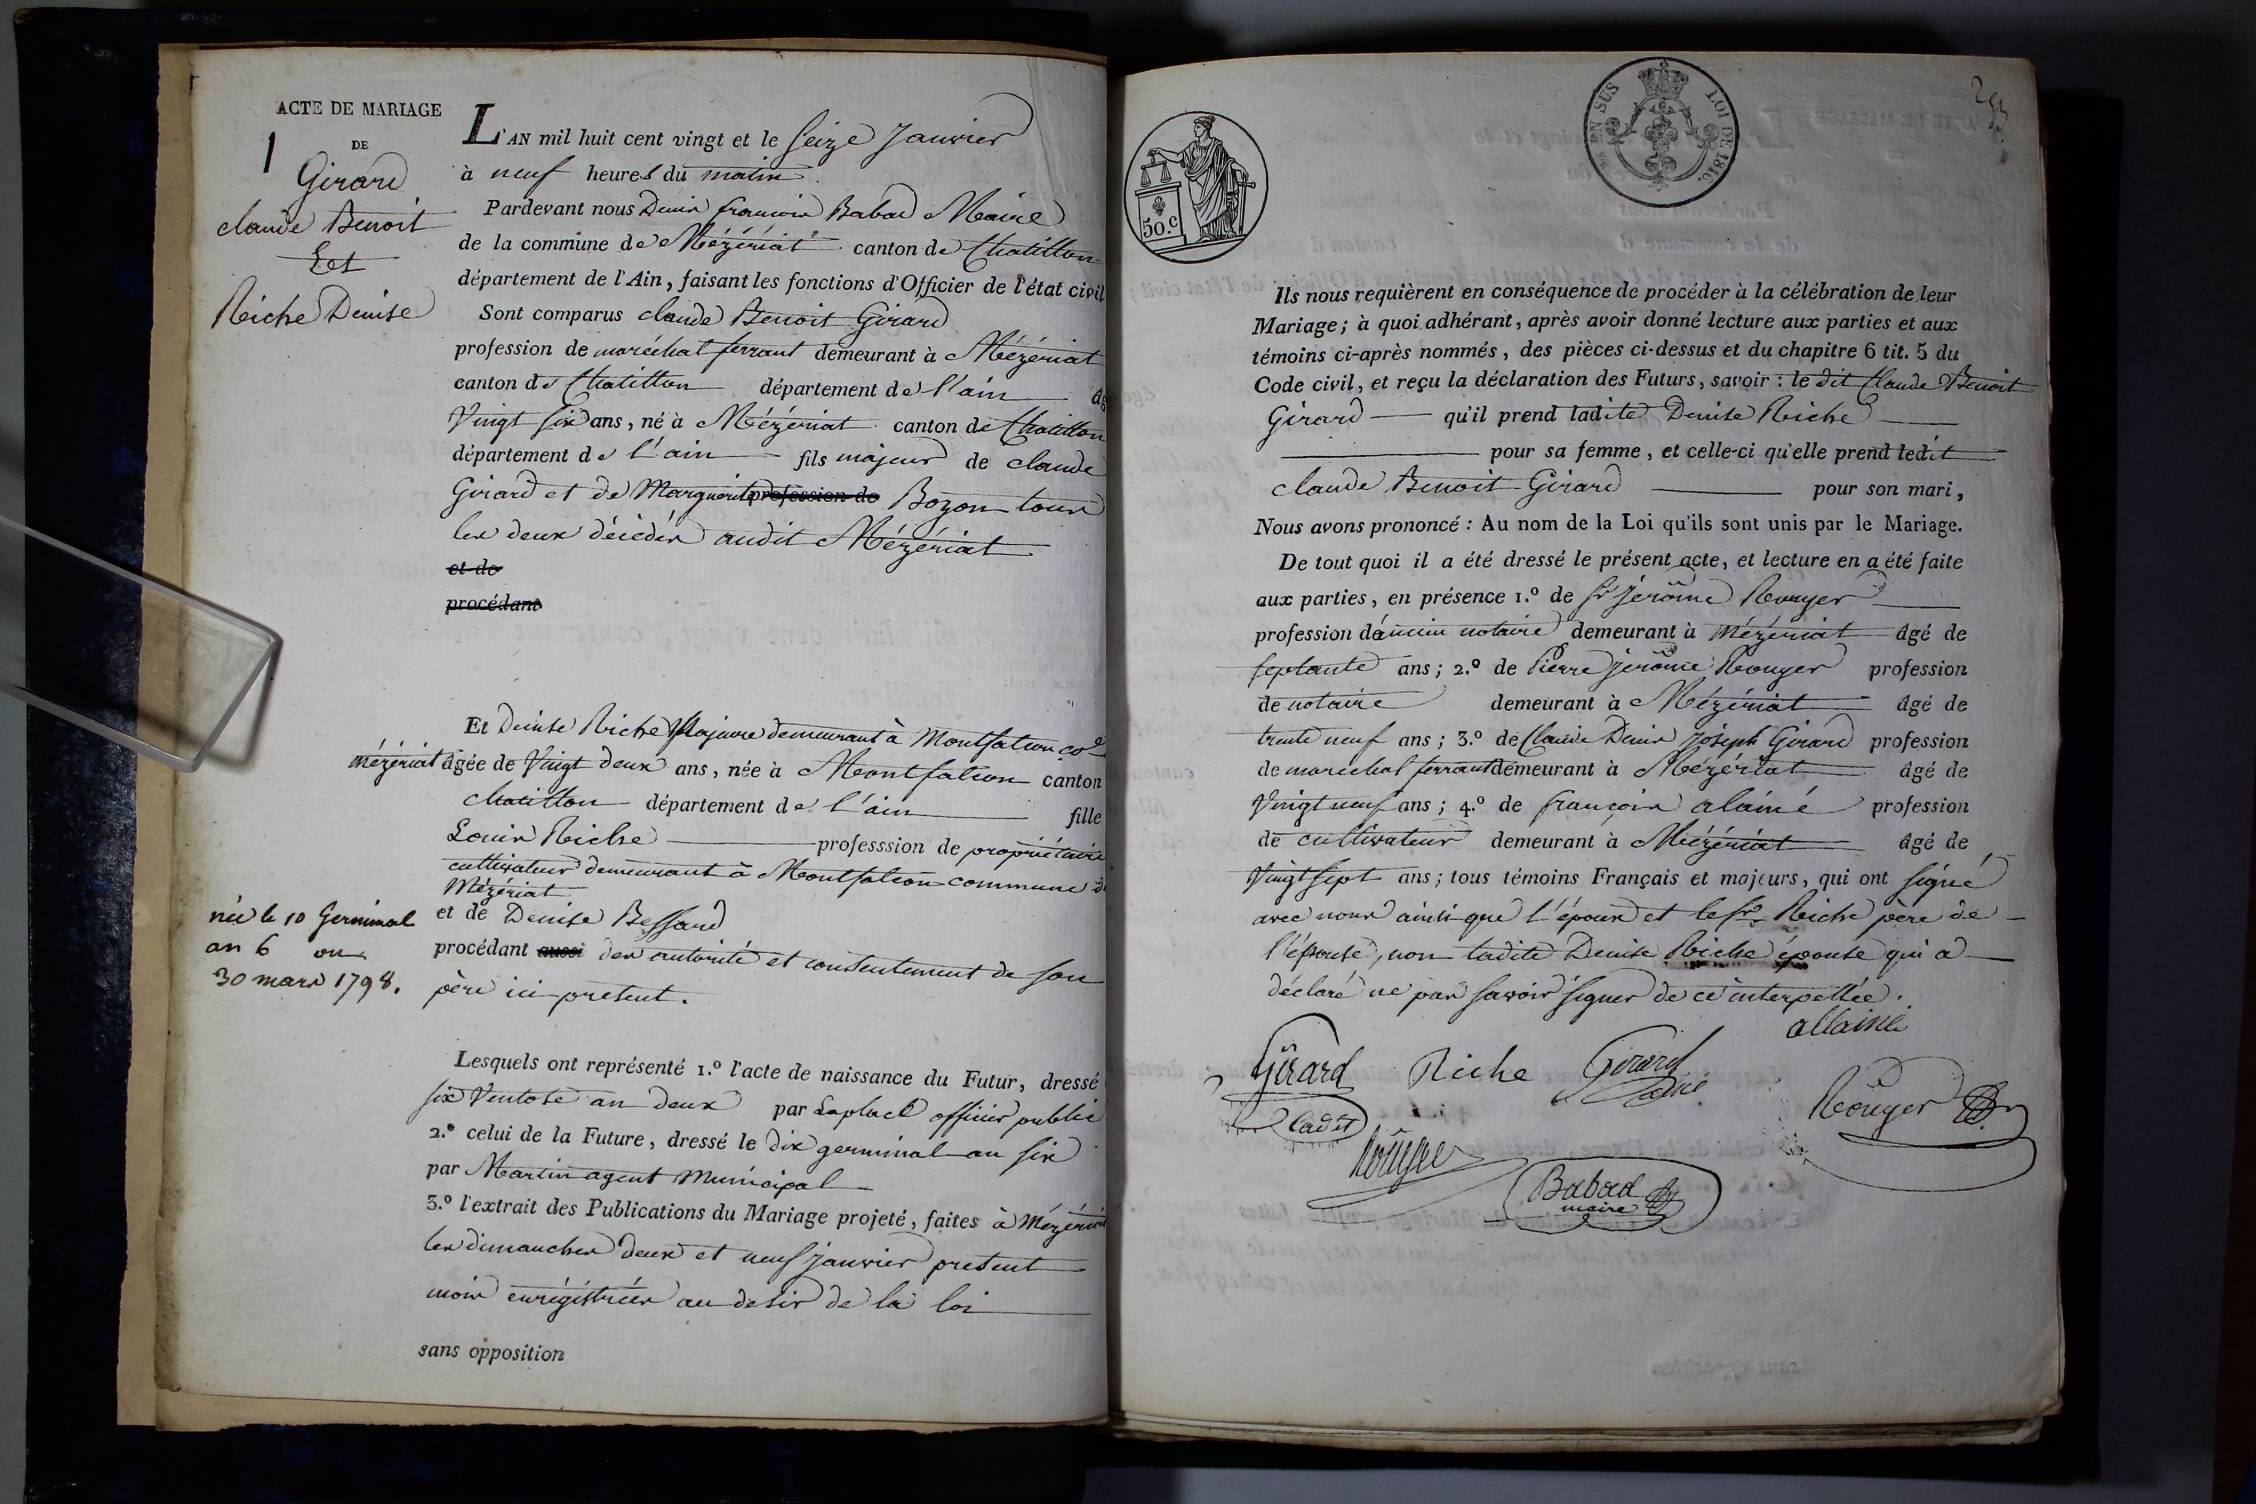 ACTE DE MARIAGE
1
DE
Girard
claude Benoit
Et
Riche Denise
L'AN mil huit cent vingt et le Seize Janvier
à neuf heures du matin
Pardevant nous Denis françois Babad Maire
de la commune de Mézériat canton de Chatillon
département de l'Ain, faisant les fonctions d'Officier de l'état civil
Sont comparus claude Benoit Girard
profession de maréchal ferrant demeurant à Mézériat
canton de Chatillon département de l'ain âg
Vingt six ans, né à Mézériat canton de Chatillon
département de l'ain fils majeur de claude
Girard et de Marguerite profession de Bozon tous
les deux décédés audit Mézériat
et de
procédant
Et Denise Riche Majeure demeurant à Montfalcon co.e
Mézériat âgée de Vingt deux ans, née à Montfalcon canton
chatillon département de l'ain fille
Louis Riche professsion de propriétaire
cultivateur demeurant à Montfalcon commune d
Mézériat
et de Denise Bessard
née le 10 Germinal
an 6 ou
30 mars 1798.
procédant aussi des autorité et consentement de son
père ici présent.
Lesquels ont représenté 1.º l'acte de naissance du Futur, dressé
six Ventose an deux par Laplace officier public
2.º celui de la Future, dressé le dix germinal an six
par Martin agent Municipal
3.º l'extrait des Publications du Mariage projeté, faites à Mézériat
les dimanches deux et neuf janvier present
mois enrégistrées au desir de la loi
sans opposition
50.c
LOI DE 1816.
Ils nous requièrent en conséquence de procéder à la célébration de leur
Mariage; à quoi adhérant, après avoir donné lecture aux parties et aux
témoins ci-après nommés, des pièces ci-dessus et du chapitre 6 tit. 5 du
Code civil, et reçu la déclaration des Futurs, savoir: le dit Claude Benoit
Girard qu'il prend ladite Denise Riche
pour sa femme, et celle-ci qu'elle prend ledit
claude Benoit Girard pour son mari,
Nous avons prononcé: Au nom de la Loi qu'ils sont unis par le Mariage.
De tout quoi il a été dressé le présent acte, et lecture en a été faite
aux parties, en présence 1.º de Sr jérôme Rouyer
profession d'ancien notaire demeurant à Mézériat âgé de
septante ans; 2.º de Pierre jérôme Rouyer profession
de notaire demeurant à Mézériat âgé de
trente neuf ans; 3.º de Claude Denis Joseph Girard profession
de marechal ferrant demeurant à Mézériat âgé de
Vingt neuf ans; 4.º de françois alainé profession
de cultivateur demeurant à Mézériat âgé de
Vingt sept ans; tous témoins Français et majeurs, qui ont signé
avec nous ainsi que l'époux et le Sr. Riche père de
l'épouse, non ladite Denise Riche épouse qui a
déclaré ne pas savoir signer de ce interpellée.
allainé
Girard Riche Girard
cadet ainé
Rouyer
Rouyer
Babad
maire